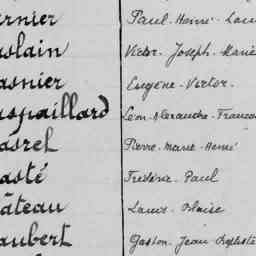 rnier Paul-Henri-Loui
uslain Victor-Joseph-Marie
asnier Eugène-Victor.
uspaillard Léon-Alexandre-Francoi
asrel Pierre-Marie-Aimé
asté Frédéric-Paul
âteau Louis-Blaise
aubert Gaston-Jean-Baptiste